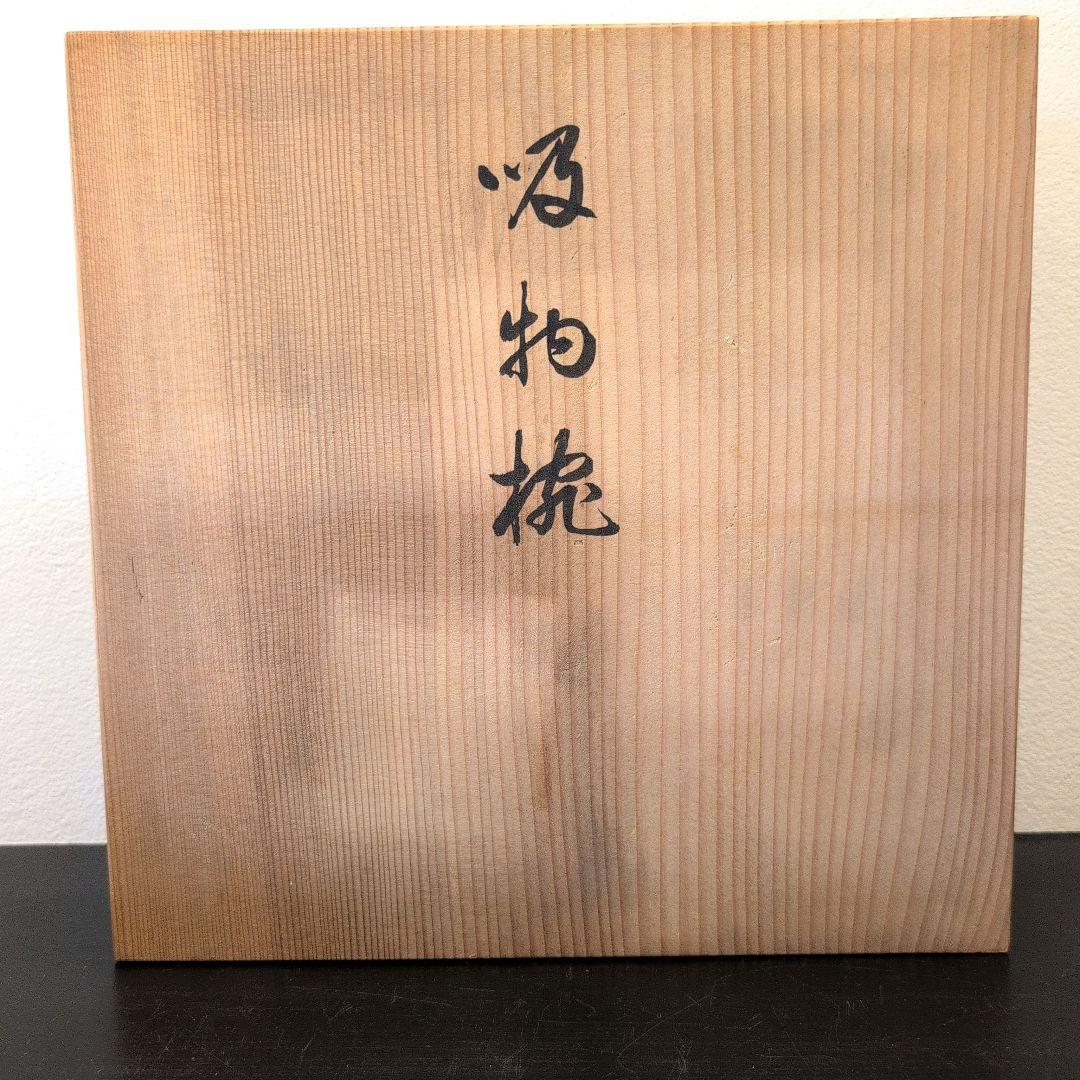 吸物椀